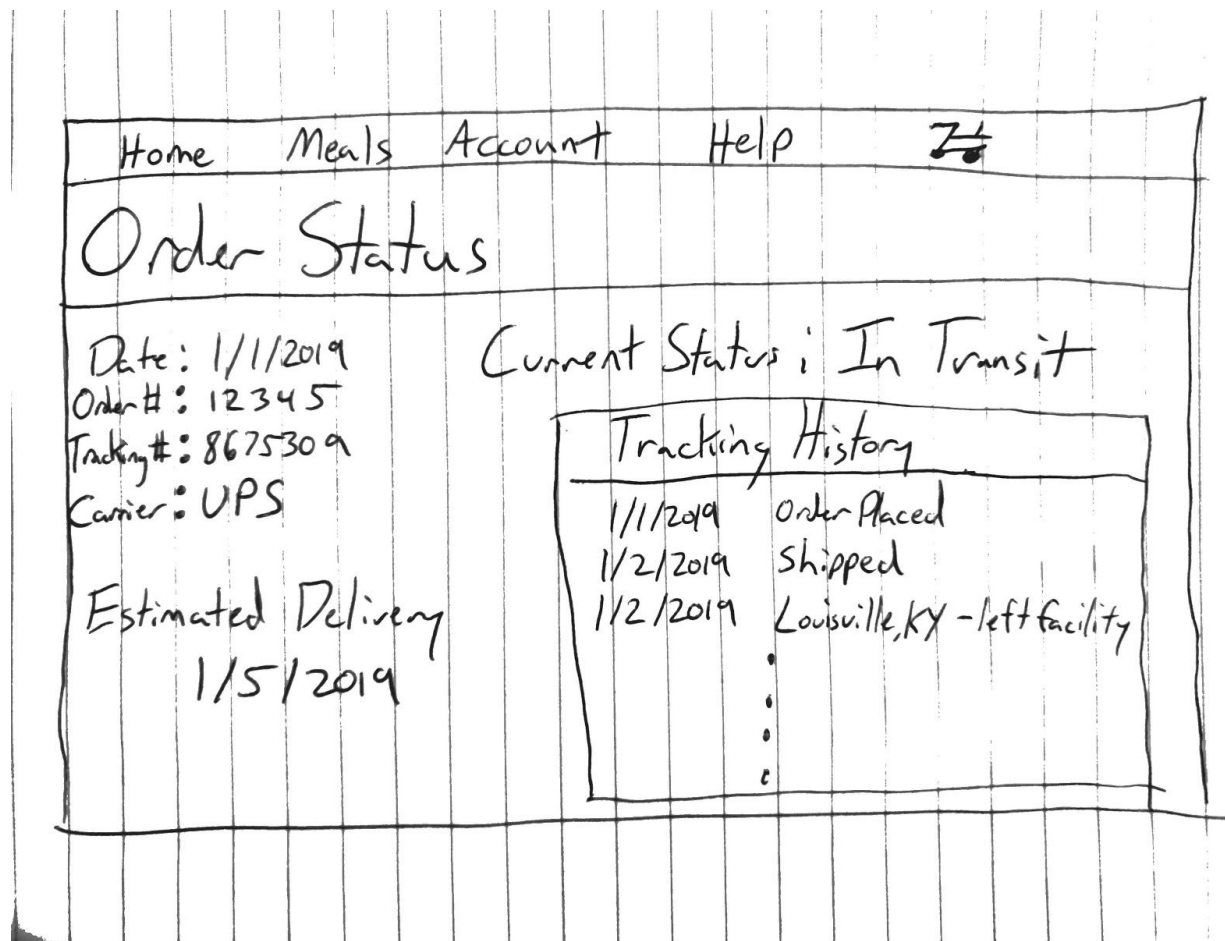 Home Meals Account Help
Order Status
Date: 1/1/2019
Order#: 12345
Tracking#: 8675309
Carrier: UPS
Estimated Delivery
1/5/2019
Current Status: In Transit
Tracking History
1/1/2019 Order Placed
1/2/2019 Shipped
1/2/2019 Louisville, KY - left facility